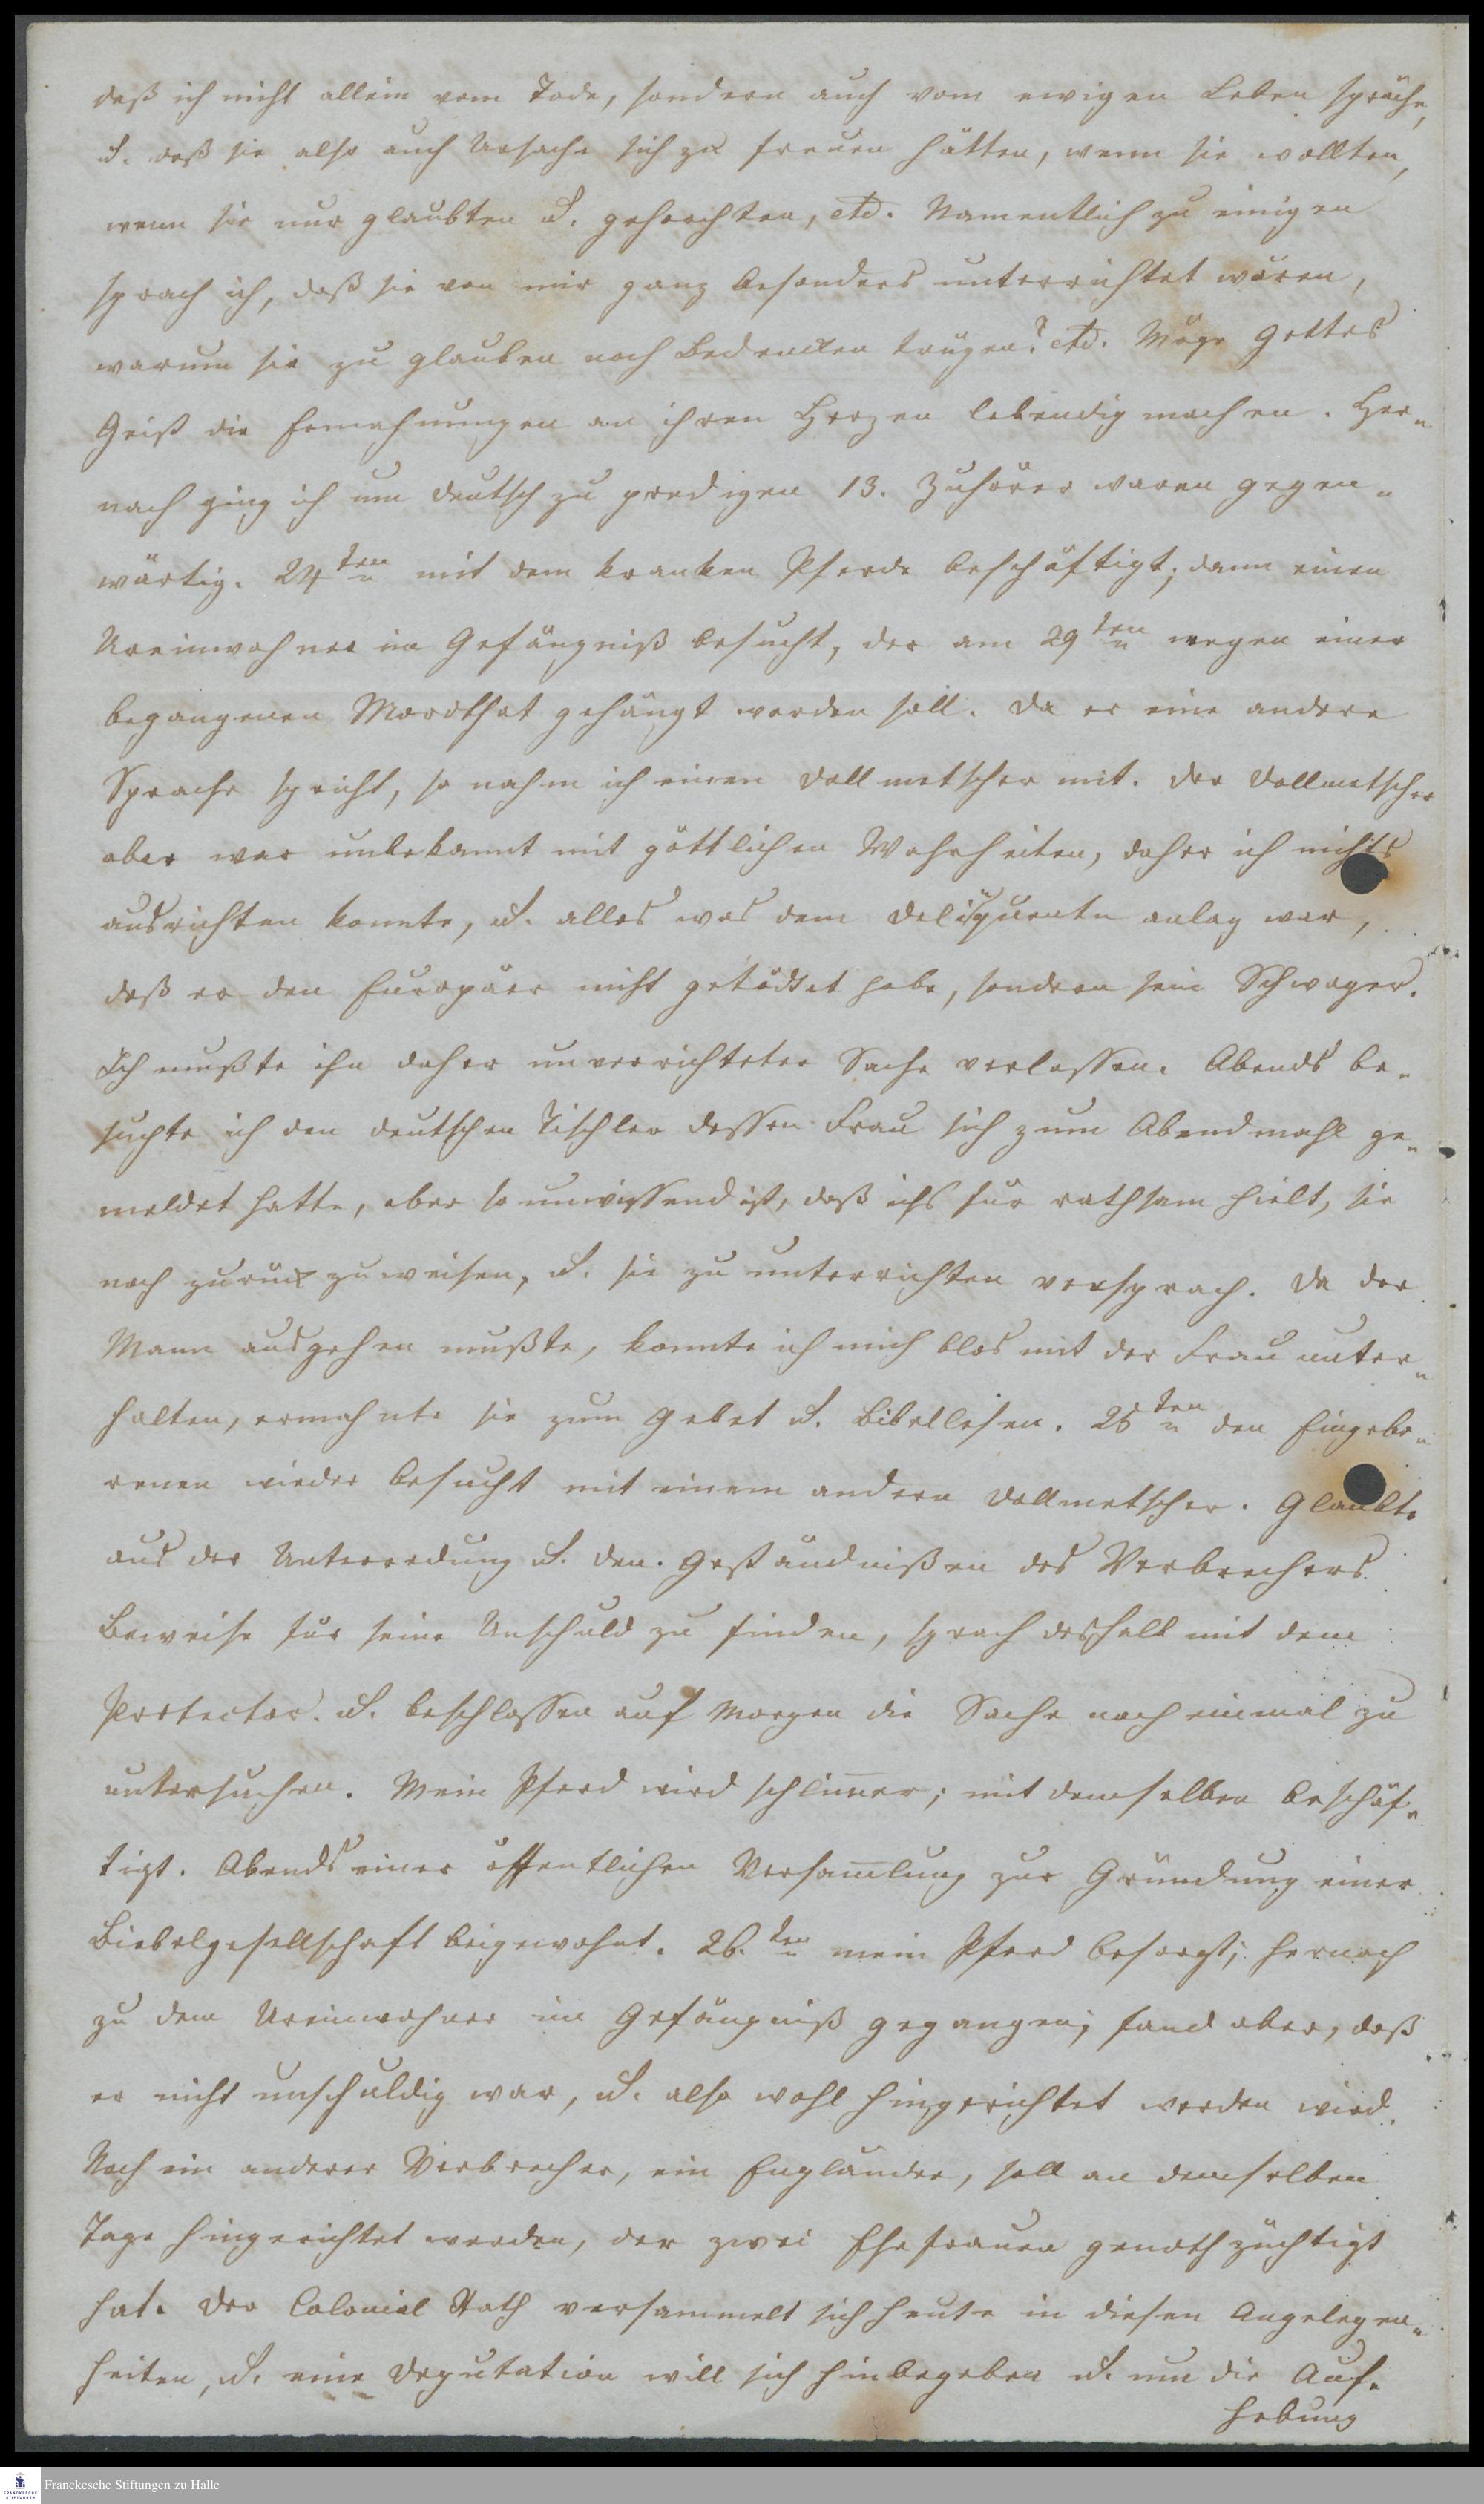 daß ich nicht allein vom Tode, sondern auch vom ewigen Leben spräche,
u. daß sie also auch Ursache sich zu freuen hätten, wenn sie wollten,
wenn sie nur glaubten u. gehorchten, etc. Namentlich zu einigen
sprach ich, daß sie von mir ganz besonders unterrichtet wären,
warum sie zu glauben noch Bedencken trügen? etc. Möge Gottes
Geist die Ermahnungen an ihren Herzen lebendig machen. Her„
nach ging ich um deutsch zu predigen 13. Zuhörer waren gegen„
wärtig. 24ten mit dem kranken Pferde beschäftigt; dann einen
Ureinwohner im Gefängniß besucht, der am 29ten wegen einer
begangenen Mordthat gehängt werden soll. Da er eine andere
Sprache spricht, so nahm ich einen Dollmetscher mit. Der Dollmetscher
aber war unbekannt mit göttlichen Wahrheiten, daher ich nichts
ausrichten konnte, u. alles was dem Deliquenten anlag war,
daß er den Europäer nicht getödtet habe, sondern sein Schwager.
Ich mußte ihn daher unverrichteter Sache verlassen. Abends be„
suchte ich den deutschen Tischler dessen Frau sich zum Abendmahl ge„
meldet hatte, aber so unwissend ist, daß ichs für rathsam hielt, sie
noch zurück zu weisen, u. sie zu unterrichten versprach. Da der
Mann ausgehen mußte, konnte ich mich blos mit der Frau unter„
halten, ermahnte sie zum Gebet u. Bibellesen. 25ten den Eingebo„
renen wieder besucht mit einem andern Dollmetscher. Glaubte
aus der Unterredung u. den Geständnißen des Verbrechers
Beweise für seine Unschuld zu finden, sprach deshalb mit dem
Protector. u. beschlossen auf Morgen die Sache noch einmal zu
untersuchen. Mein Pferd wird schlim̅er; mit demselben beschäf„
tigt. Abends einer öffentlichen Versam̅lung zur Gründung einer
Biebelgesellschaft beigewohnt. 26.ten mein Pferd besorgt; hernach
zu dem Ureinwohner im Gefängniß gegangen; fand aber, daß
er nicht unschuldig war, u. also wohl hingerichtet werden wird.
Noch ein anderer Verbrecher, ein Engländer, soll an demselben
Tage hingerichtet werden, der zwei Ehefrauen genothzüchtigt
hat. Der Colonial Rath versammelt sich heute in diesen Angelegen„
heiten, u. eine Deputation will sich hinbegeben u. um die Auf„
hebung
Franckesche Stiftungen zu Halle